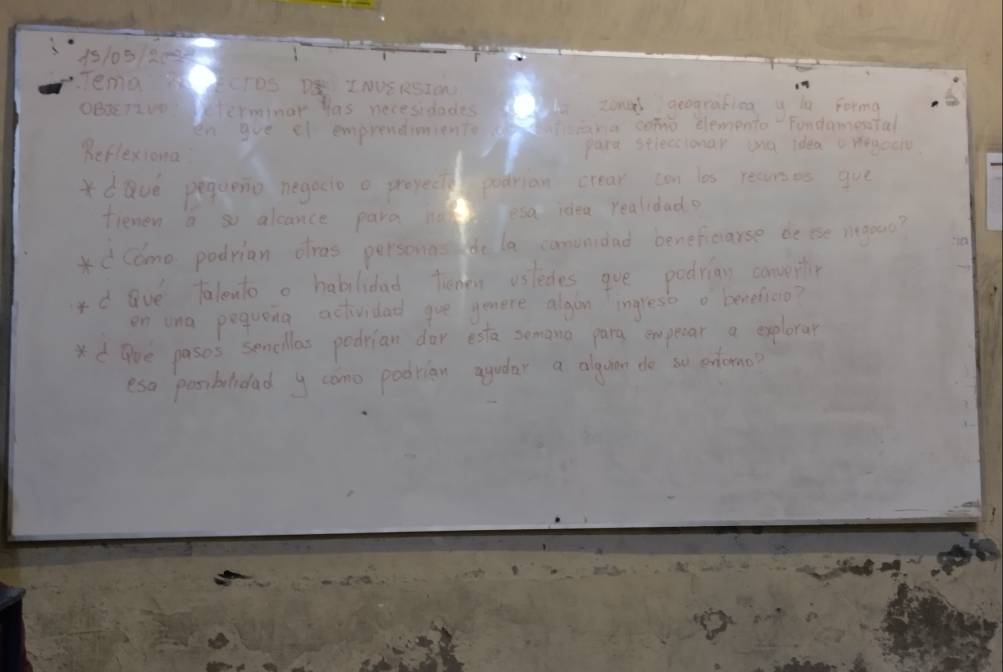 15/05/
Tema PROYECTOS DE INVERSIÓN
OBJETIVO: Determinar las necesidades de la zona geográfica y la forma
en que el emprendimiento como elemento fundamental
para seleccionar una idea o negocio.
Reflexiona:
* ¿Qué pequeño negocio o proyecto podrían crear con los recursos que
tienen a su alcance para esa idea realidad?
* ¿Cómo podrían otras personas de la comunidad beneficiarse de ese negocio?
* ¿Qué talento o habilidad tienen ustedes que podrían convertir
en una pequeña actividad que genere algún ingreso o beneficio?
* ¿Qué pasos sencillos podrían dar esta semana para empezar a explorar
esa posibilidad y cómo podrían ayudar a alguien de su entorno?